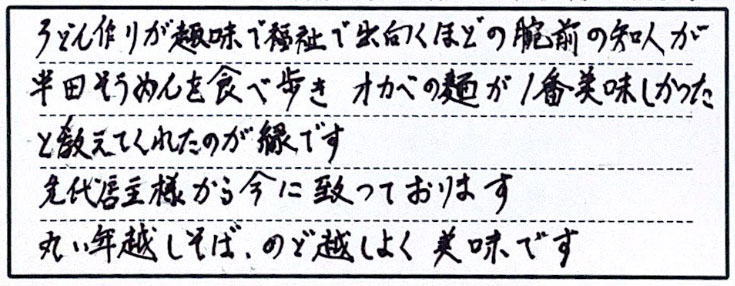 うどん作りが趣味で福祉で出向くほどの腕前の知人が
半田そうめんを食べ歩き オカベの麺が1番美味しかった
と教えてくれたのが縁です
先代店主様から今に致っております
丸い年越しそば、のど越しよく 美味です